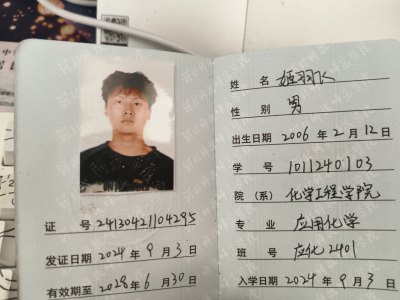 证 号 24130421104295
发证日期 2024 年 9 月 3 日
有效期至 2028 年 6 月 30 日
姓 名 姬羽飞
性 别 男
出生日期 2006 年 2 月 12 日
学 号 1011240103
院 (系) 化学工程学院
专 业 应用化学
班 号 应化2401
入学日期 2024 年 9 月 3 日